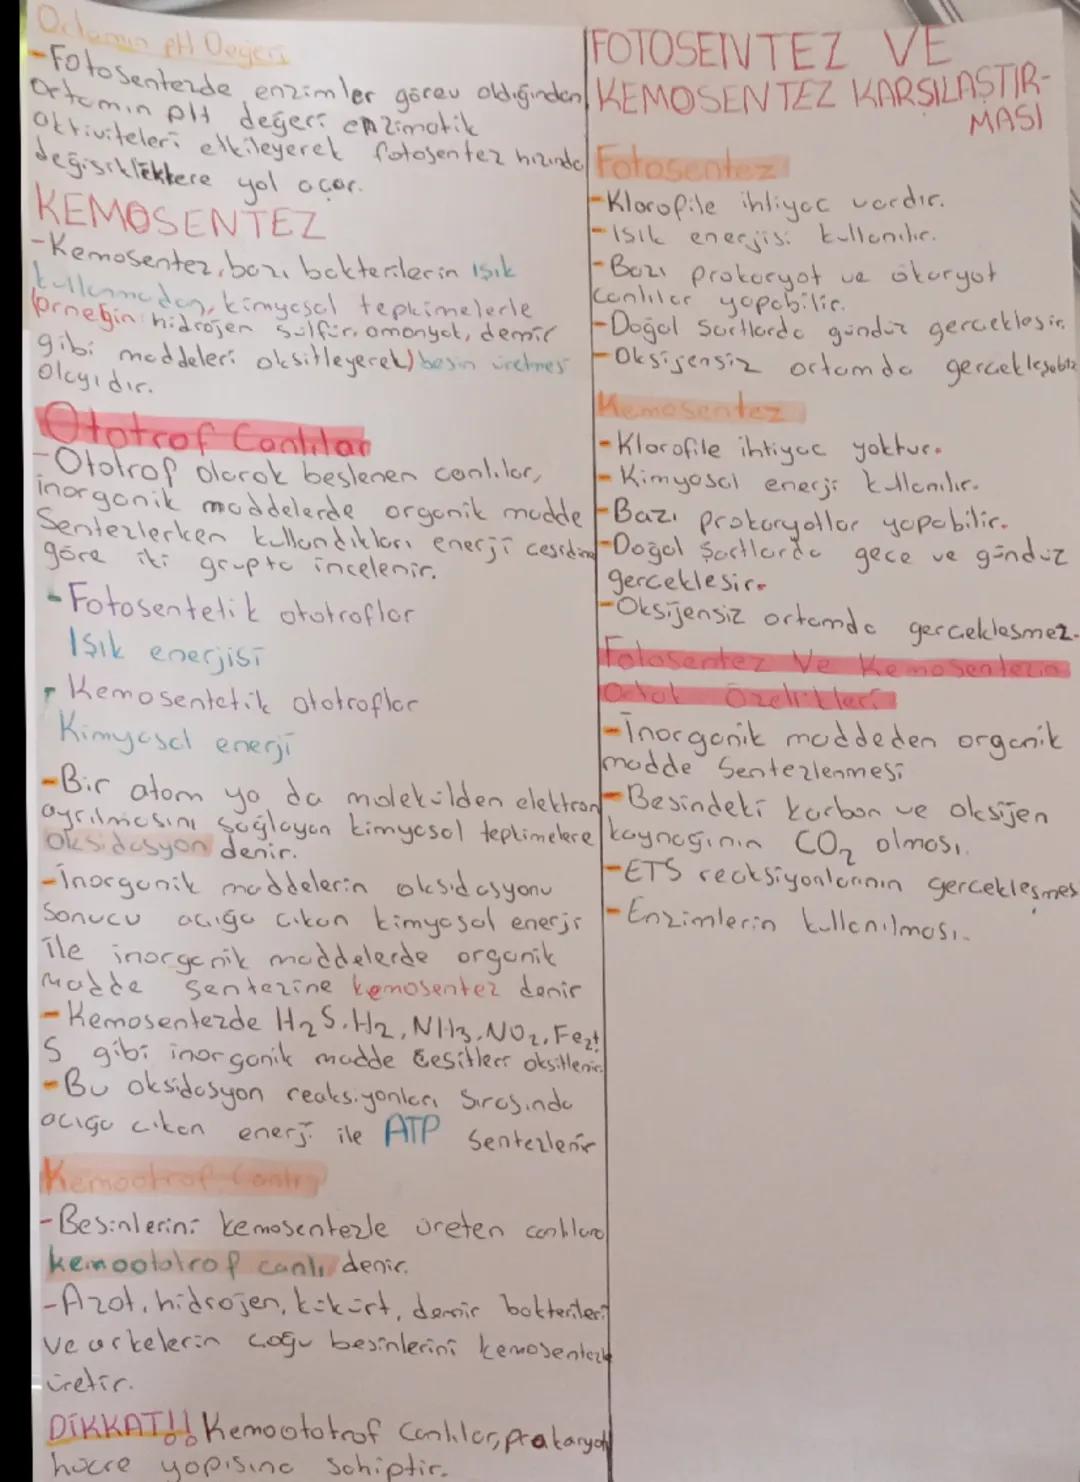 Ortamın pH Değeri
-Fotosentezde enzimler görev oldığından
Ortamın pH değeri enzimatik
aktiviteleri etkileyerek fotosentez hızında
değişikliklere yol açar.
KEMOSENTEZ
-Kemosentez, bazı bakterilerin ışık
kullanmadan, kimyasal tepkimelerle
(örneğin: hidrojen sülfür, amonyak, demir
gibi maddeleri oksitleyerek) besin üretmesi
olayıdır.
Ototrof Canlılar
-Ototrof olarak beslenen canlılar,
inorganik maddelerde organik madde
Sentezlerken kullandıkları enerji cesidine
göre iki grupta incelenir.
-Fotosentetik ototroflar
Işık enerjisi
-Kemosentetik ototroflar
Kimyasal enerji
-Bir atom ya da molekülden elektron
ayrılmasını sağlayan kimyasal tepkimelere
oksidasyon denir.
-İnorganik maddelerin oksidasyonu
Sonucu açığa cıkan kimyasal enerji
ile inorganik maddelerde organik
madde sentezine kemosentez denir
-Kemosentezde H₂S, H₂, NH₃, NO₂, Fe₂+,
S gibi inorganik madde çeşitleri oksitlenir.
-Bu oksidasyon reaksiyonları sırasında
açığa cıkan enerji ile ATP Sentezlenir
Kemootrof Canlı
-Besinlerini kemosentezle üreten canlılara
kemoototrof canlı denir.
-Azot, hidrojen, kükürt, demir bakterileri
ve arkelerin çoğu besinlerini kemosentezle
üretir.
DİKKAT!! Kemoototrof Canlılar, prakaryot
hücre yapısına sahiptir.
FOTOSENTEZ VE
KEMOSENTEZ KARŞILAŞTIR-
MASI
Fotosentez
-Klorofile ihtiyac vardır.
-Işık enerjisi kullanılır.
-Bazı prokaryot ve ökaryot
canlılar yapabilir.
-Doğal Sartlarda gündüz gercekleşir.
-Oksijensiz ortamda gerçekleşebilir
Kemosentez
-Klorofile ihtiyac yoktur.
-Kimyasal enerji kullanılır.
-Bazı prokaryotlar yapabilir.
-Doğal Şartlarda gece ve gündüz
gercekleşir.
-Oksijensiz ortamda gerçekleşmez.
Fotosentez Ve Kemosentezin
Ortak Özellikleri
-İnorganik maddeden organik
madde Sentezlenmesi
-Besindeki karbon ve oksijen
kaynağının CO₂ olması.
-ETS reaksiyonlarının gerçekleşmes
-Enzimlerin kullanılması.